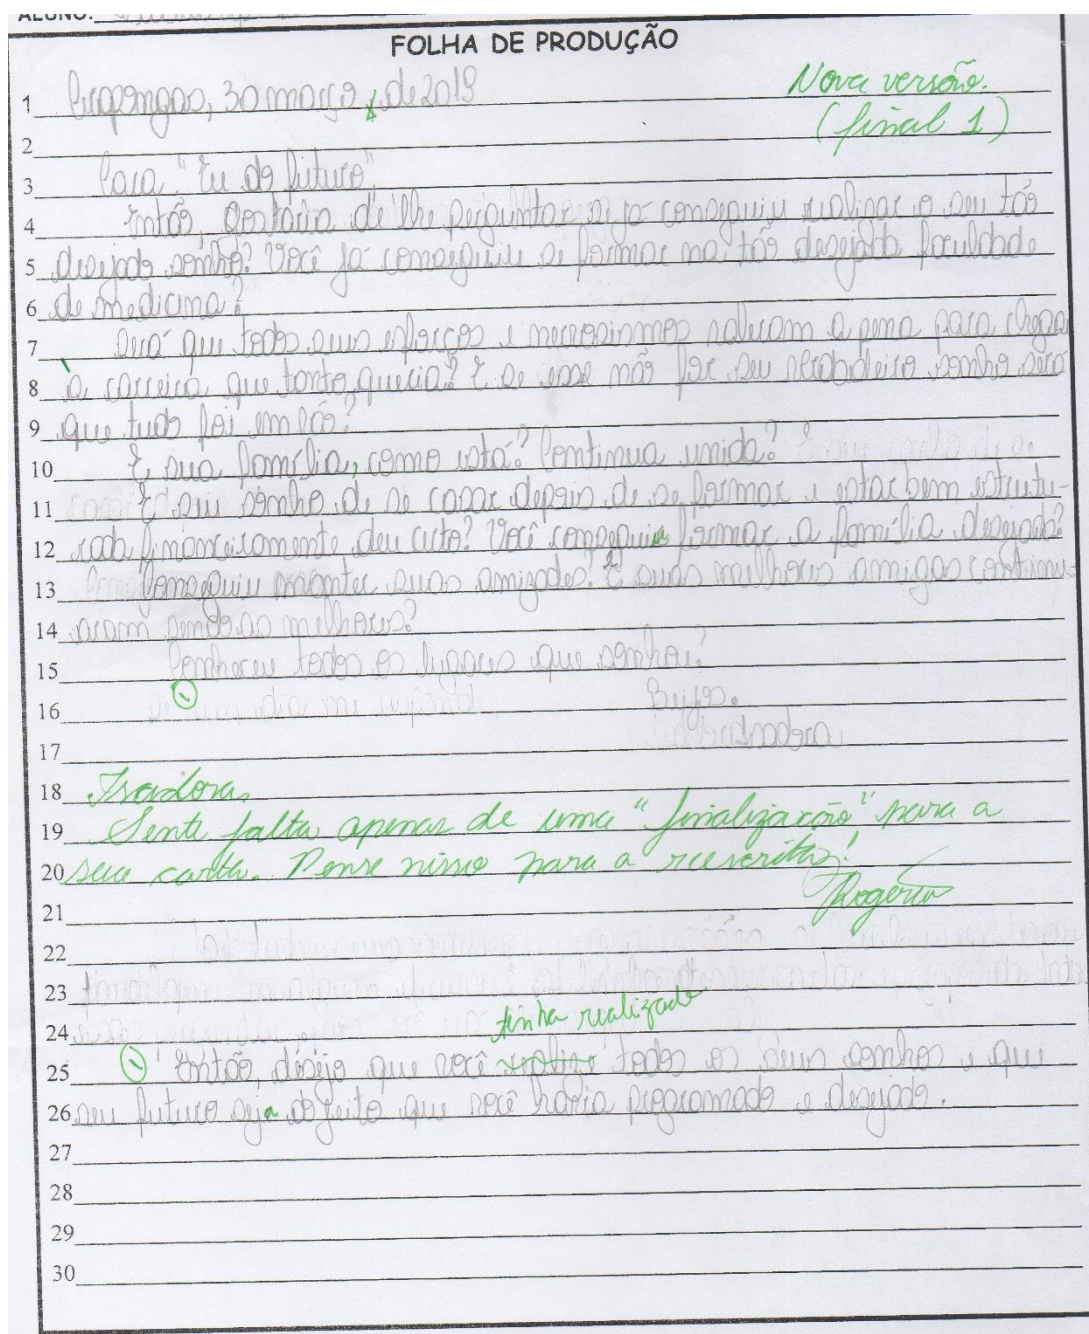 ALUNO:
FOLHA DE PRODUÇÃO
Nova versão.
(final 1)
1 Arapongas, 30 março, de 2019
2
3 Para "Eu do futuro"
4 Então, gostaria de lhe perguntar se já conseguiu realizar o seu tão
5 desejado sonho? Você já conseguiu se formar na tão desejada faculdade
6 de medicina?
7 Será que todo seus esforços e nervosismos valeram a pena para chegar
8 à carreira que tanto queria? E se esse não for seu verdadeiro sonho será
9 que tudo foi em vão?
10 E, sua família, como está? Continua unida?
11 E seu sonho de se casar depois de se formar e estar bem estrutu-
12 rada financeiramente deu certo? Você conseguiu formar a família desejada?
13 Conseguiu manter suas amizades? E suas melhores amigas continu-
14 aram sendo as melhores?
15 Conheceu todos os lugares que sonhou?
1
16 Beijos.
17
18 Isadora,
19 Senti falta apenas de uma "finalização" para a
20 sua carta. Pense nisso para a reescrita!
21 Rogério
22
23
24 tenha realizado
25 1 Então, desejo que você realize todos os seus sonhos e que
26 seu futuro seja do jeito que você havia programado e desejado.
27
28
29
30